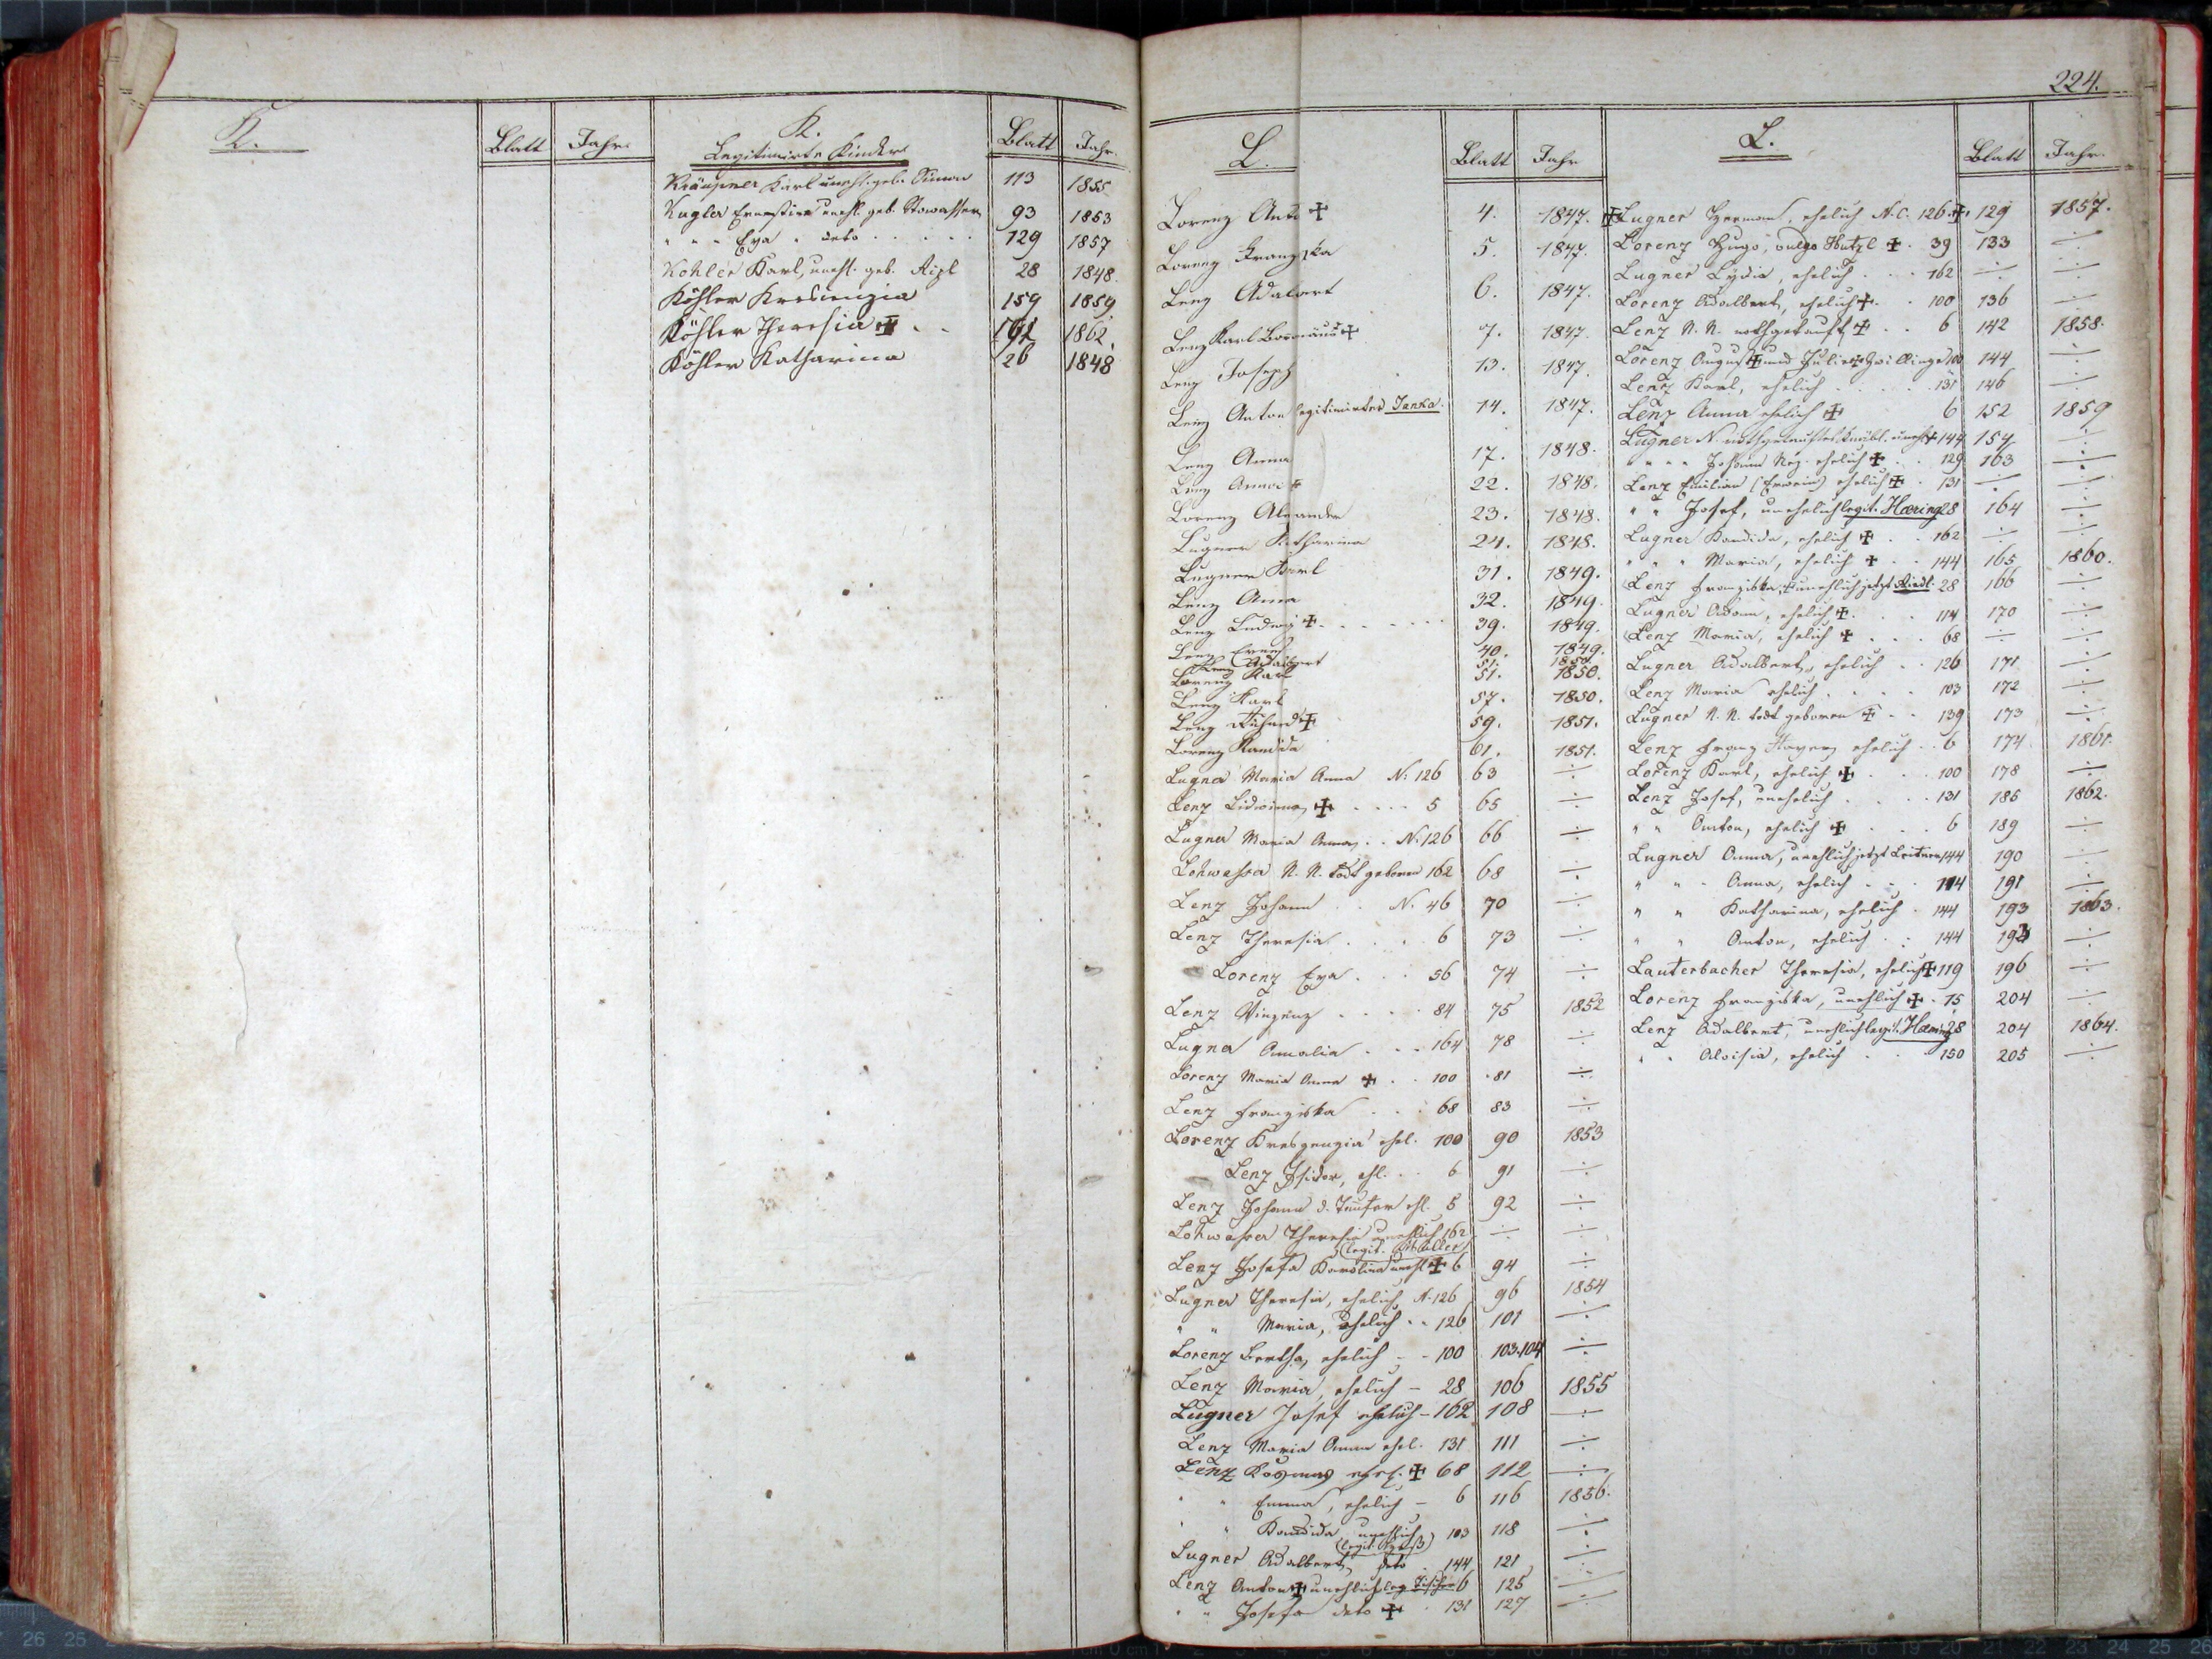 224.
K.
Blatt Jahr
K.
Legitimirte Kinder
Blatt Jahr.
Karl unehl. geb. Simon 113 1855
Kugler Ernestine unehl. geb. Stowasser 93 1853
" " " Eva " detto . . . . . 129 1857
Köhler Karl, unehl. geb. Riedl 28 1848
Köhler Kreszenzia 159 1859
Köhler Theresia ✠ . . 1862.
Köhler Katharina 26 1848
L.
Blatt Jahr
Lorenz Anto ✠ 4. 1847.
Lorenz Franziska 5. 1847.
Lenz Adalbert 6. 1847.
Lenz Karl Boromäus ✠ 7. 1847.
Lenz Joseph 13. 1847.
Lenz Anton legitimirter Janka. 14. 1847.
Lenz Anna 17. 1848.
Lenz Anna ✠ 22. 1848.
Lorenz Alexander 23. 1848.
Lugner Katharina 24. 1848.
Lugner Karl 31. 1849.
Lenz Anna 32. 1849.
Lenz Ludwig ✠ . . . . . . 39. 1849.
Lenz Ernest 40. 1849.
Lenz Adalbert 51. 1850.
Lorenz Karl 51. 1850.
Lenz Karl 57. 1850.
Lenz Richard ✠ 59. 1851.
Lorenz Kandida 61. 1851.
Lugner Maria Anna N: 126 63 ÷
Lenz Lidwina ✠ . . . . 5 65 ÷
Lugner Maria Anna . . N: 126 66 ÷
Lohwasser N. N. todt geboren 162 68 ÷
Lenz Johann . . N. 46 70 ÷
Lenz Theresia . . . . 6 73 ÷
Lorenz Eva . . . 56 74 ÷
Lenz Vinzenz . . . . 84 75 1852
Lugner Amalia . . . 164 78 ÷
Lorenz Maria Anna ✠ . . 100 81 ÷
Lenz Franziska . . . 68 83 ÷
Lorenz Kreszenzia ehel. 100 90 1853
Lenz Isidor, ehl. . . 6 91 ÷
Lenz Johann d. Täufer ehl. 5 92 ÷
Lohwasser Theresia unehlich 162 ÷ ÷
(legit. Müller)
Lenz Josefa Karolina unehl ✠ 6 94 ÷
Lugner Theresia, ehelich N. 126 96 1854
" " Maria, ehelich . . 126 101 ÷
Lorenz Bertha, ehelich - - 100 103.104 ÷
Lenz Maria, ehelich - 28 106 1855
Lugner Josef ehelich - 162 108 ÷
Lenz Maria Anna ehel. 131 111 ÷
Lenz Kosmas ehel. ✠ 68 112 ÷
" " Emma, ehelich - 6 116 1856.
" " Kandida unehlich 103 118 ÷
Lugner Adalbert, detto 144 121 ÷
Lenz Anton ✠ unehlich leg. Fischer 6 125 ÷
" " Josefa detto ✠ 131 127 ÷
L.
Blatt Jahr.
✠ Lugner Herman, ehelich N.C. 126. ✠. 129 1857.
Lorenz Hugo, vulgo Hutzl ✠. 39 133 ÷
Lugner Lydia, ehelich . . . 162 ÷ ÷
Lorenz Adalbert, ehelich ✠. . 100 136 ÷
Lenz N. N. nothgetauft ✠ . . 6 142 1858.
Lorenz August ✠ und Julie ✠ Zwillinge 100 144 ÷
Lenz Karl, ehelich . . . . 131 146 ÷
Lenz Anna ehelich ✠ 6 152 1859
Lugner N. nothgetauftes Knäbl. unehl ✠ 144 154 ÷
" " " Johann Nep. ehelich ✠ . . 129 163 ÷
Lenz Emilian (Erwein) ehelich ✠ . 131 ÷ ÷
" " Josef, unehelich legit. Hæring 28 164 ÷
Lugner Kandida, ehelich ✠ . . 162 ÷ ÷
" " " Maria, ehelich ✠ . . 144 165 1860.
Lenz Franziska, ✠ unehlich jetzt Riedl. 28 166 ÷
Lugner Adam, ehelich ✠. . . 114 170 ÷
Lenz Maria, ehelich ✠ . . . 68 ÷ ÷
Lugner Adalbert, ehelich . . 126 171 ÷
Lenz Maria ehelich . . . . 103 172 ÷
Lugner N. N. todt geboren ✠ . . 139 173 ÷
Lenz Franz Xaver, ehelich . . 6 174. 1861.
Lorenz Karl, ehelich ✠ . . . 100 178 ÷
Lenz Josef, unehelich . . . . 131 186 1862.
" " Anton, ehelich ✠ . . . 6 189 ÷
Lugner Anna, unehlich jetzt Leitner 144 190 ÷
" " Anna, ehelich . . . 114 191 ÷
" " Katharina, ehelich . 144 193 1863.
" " Anton, ehelich . : 144 193 ÷
Lauterbacher Theresia, ehelich ✠ 119 196 ÷
Lorenz Franziska, unehlich ✠ . 15 204 ÷
Lenz Adalbert, unehlich legit. Hæring 28 204 1864.
" " Aloisia, ehelich . . . 150 205 ÷